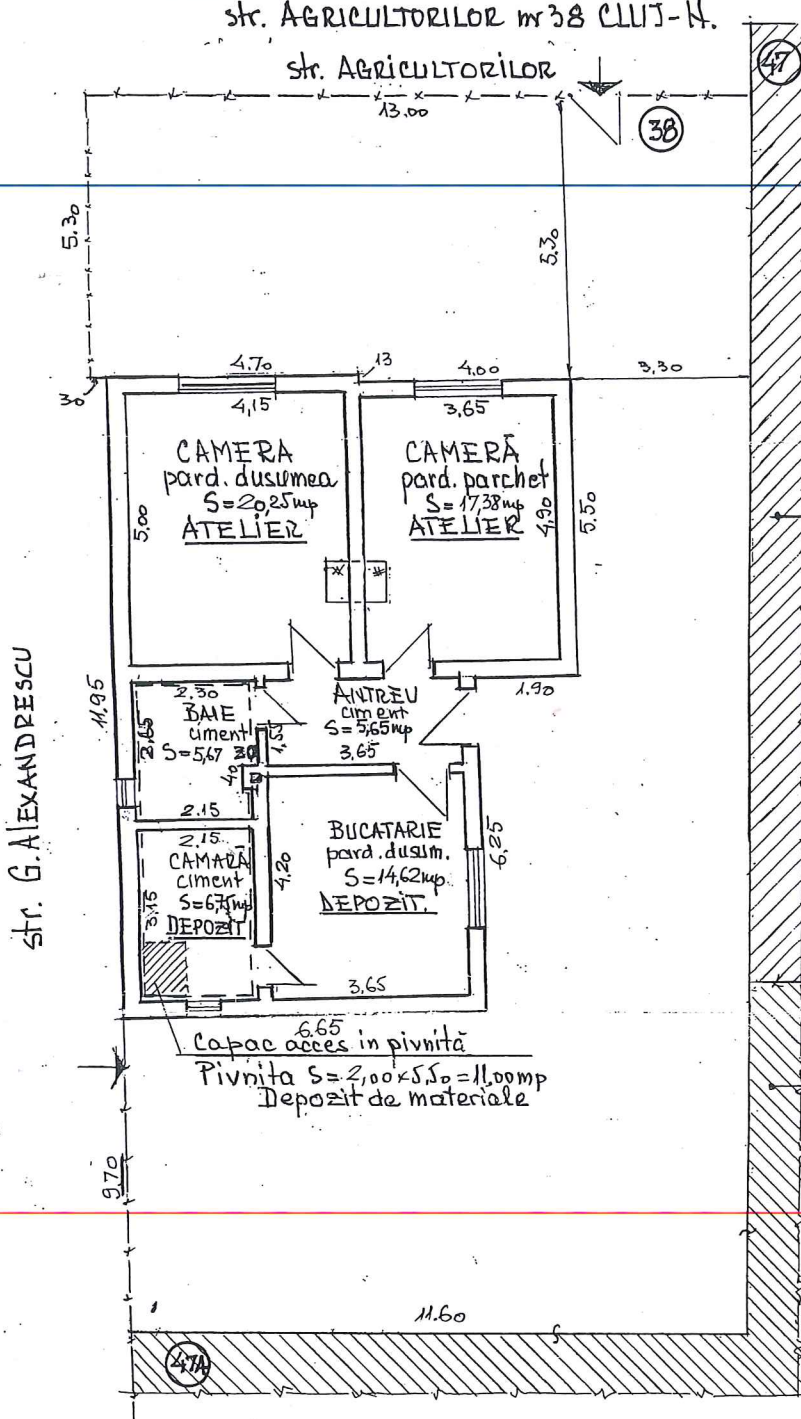 str. AGRICULTORILOR nr 38 CLUJ-N.
str. AGRICULTORILOR
47
13.00
38
5.30
5.30
4.70
13
4.00
3,30
30
4,15
3,65
CAMERA
pard. dusumea
S=20,25mp
ATELIER
5,00
CAMERĂ
pard. parchet
S=17,38mp
ATELIER
4,90
5.50
str. G. ALEXANDRESCU
11,95
2.30
BAIE
ciment
S=5,67
2,65
30
40
2.15
ANTREU
ciment
S=5,65mp
3,65
1,55
1.90
2.15
CAMARĂ
ciment
S=6,75mp
DEPOZIT
3,15
4,20
BUCATARIE
pard. dusum.
S=14,62mp.
DEPOZIT.
6,25
3,65
6.65
Capac acces in pivnită
Pivnita S=2,00x5,50=11,00mp
Depozit de materiale
9,70
11.60
47A